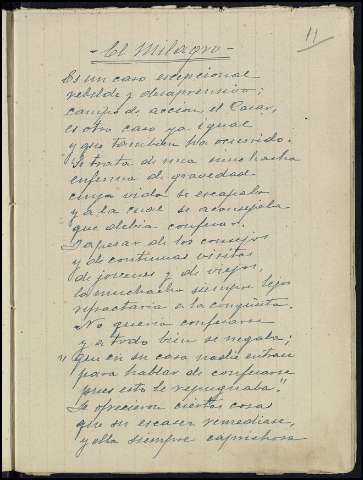 11
- El Milagro -
Es un caso excepcional
rebelde y desaprensivo;
campo de accion, el Casar,
es otro caso ya igual
y que tambien ha ocurrido.
Se trata de una muchacha
enferma de gravedad
cuya vida se escapaba
y a la cual se aconsejaba
que debia confesar.
Y apesar de los consejos
y de continuas visitas
de jovenes y de viejos,
la muchacha siempre lejos
refractaria a la conquista.
No queria confesarse
y a todo bien se negaba;
"que en su casa nadie entrase
para hablar de confesarse
pues esto le repugnaba."
Le ofrecieron ciertas cosas
que su escasez remediase,
y ella siempre caprichosa